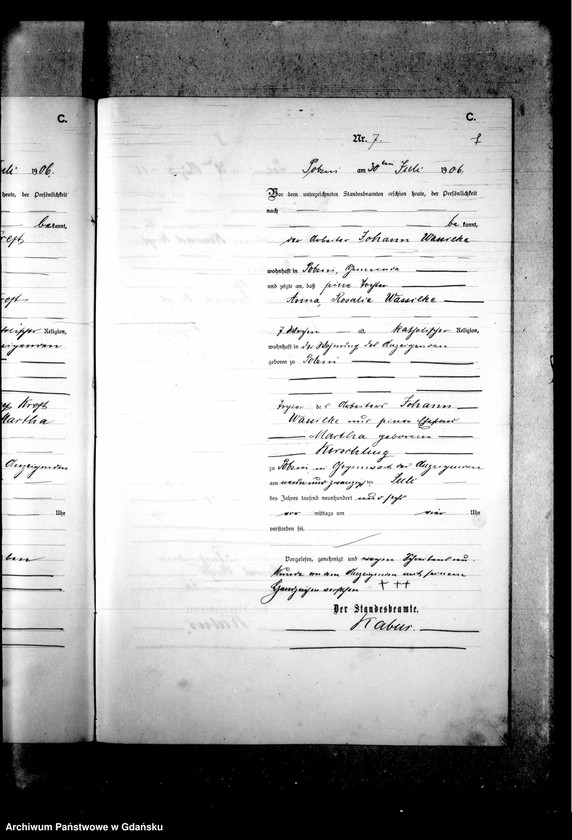 C.
C.
Nr. 7.
uli 1906.
Pokui am 30ten Juli 1906.
heute, der Persönlichkeit
Vor dem unterzeichneten Standesbeamten erschien heute, der Persönlichkeit
nach
kannt,
be kannt,
der Arbeiter Johann Wassilke
wohnhaft in
und zeigte an, daß seine Tochter
Anna, Rosalie Wassilke
7 Wochen alt, katholischer Religion,
Religion,
wohnhaft in der Wohnung des Anzeigenden
geboren zu
Tochter des Arbeiters Johann
Kroft
Wassilke und seiner Ehefrau
Martha
Martha geborene
Kerschling
zu in Gegenwart des Anzeigenden
Anzeigenden
am neun und zwanzigsten Juli
des Jahres tausend neunhundert und sechs
vor mittags um vier Uhr
Uhr
verstorben sei.
Vorgelesen, genehmigt und wegen Schreibens un-
kunde von dem Anzeigenden mit seinem
Handzeichen versehen + + +
Der Standesbeamte.
Kabus.
Archiwum Państwowe w Gdańsku